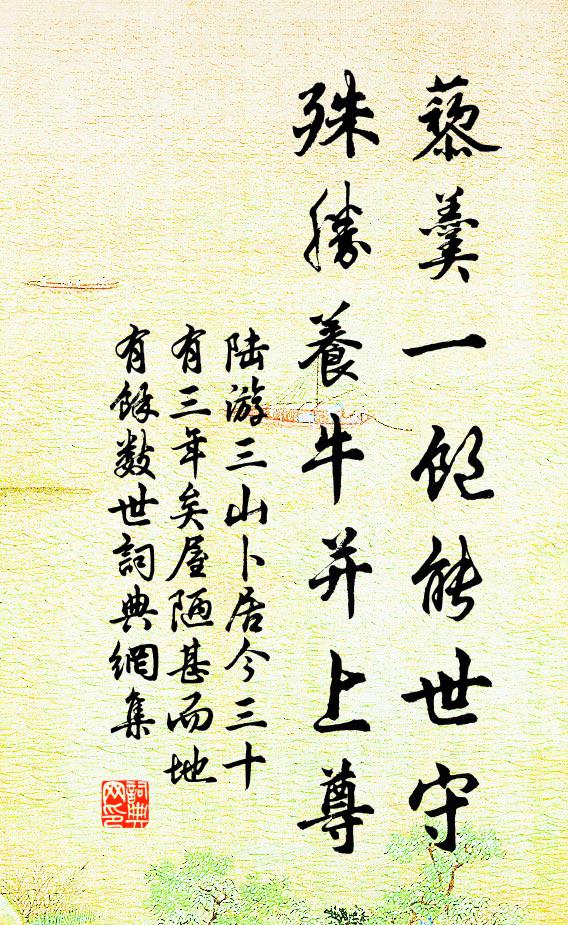 藜羹一飽能世守
殊勝養牛并上尊
陆游三山卜居今三十
有三年矣屋陋甚而地
有餘数世詞典網集
詞典网印